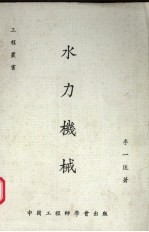 工程叢書
水力機械
李一匡著
中國工程師學會出版